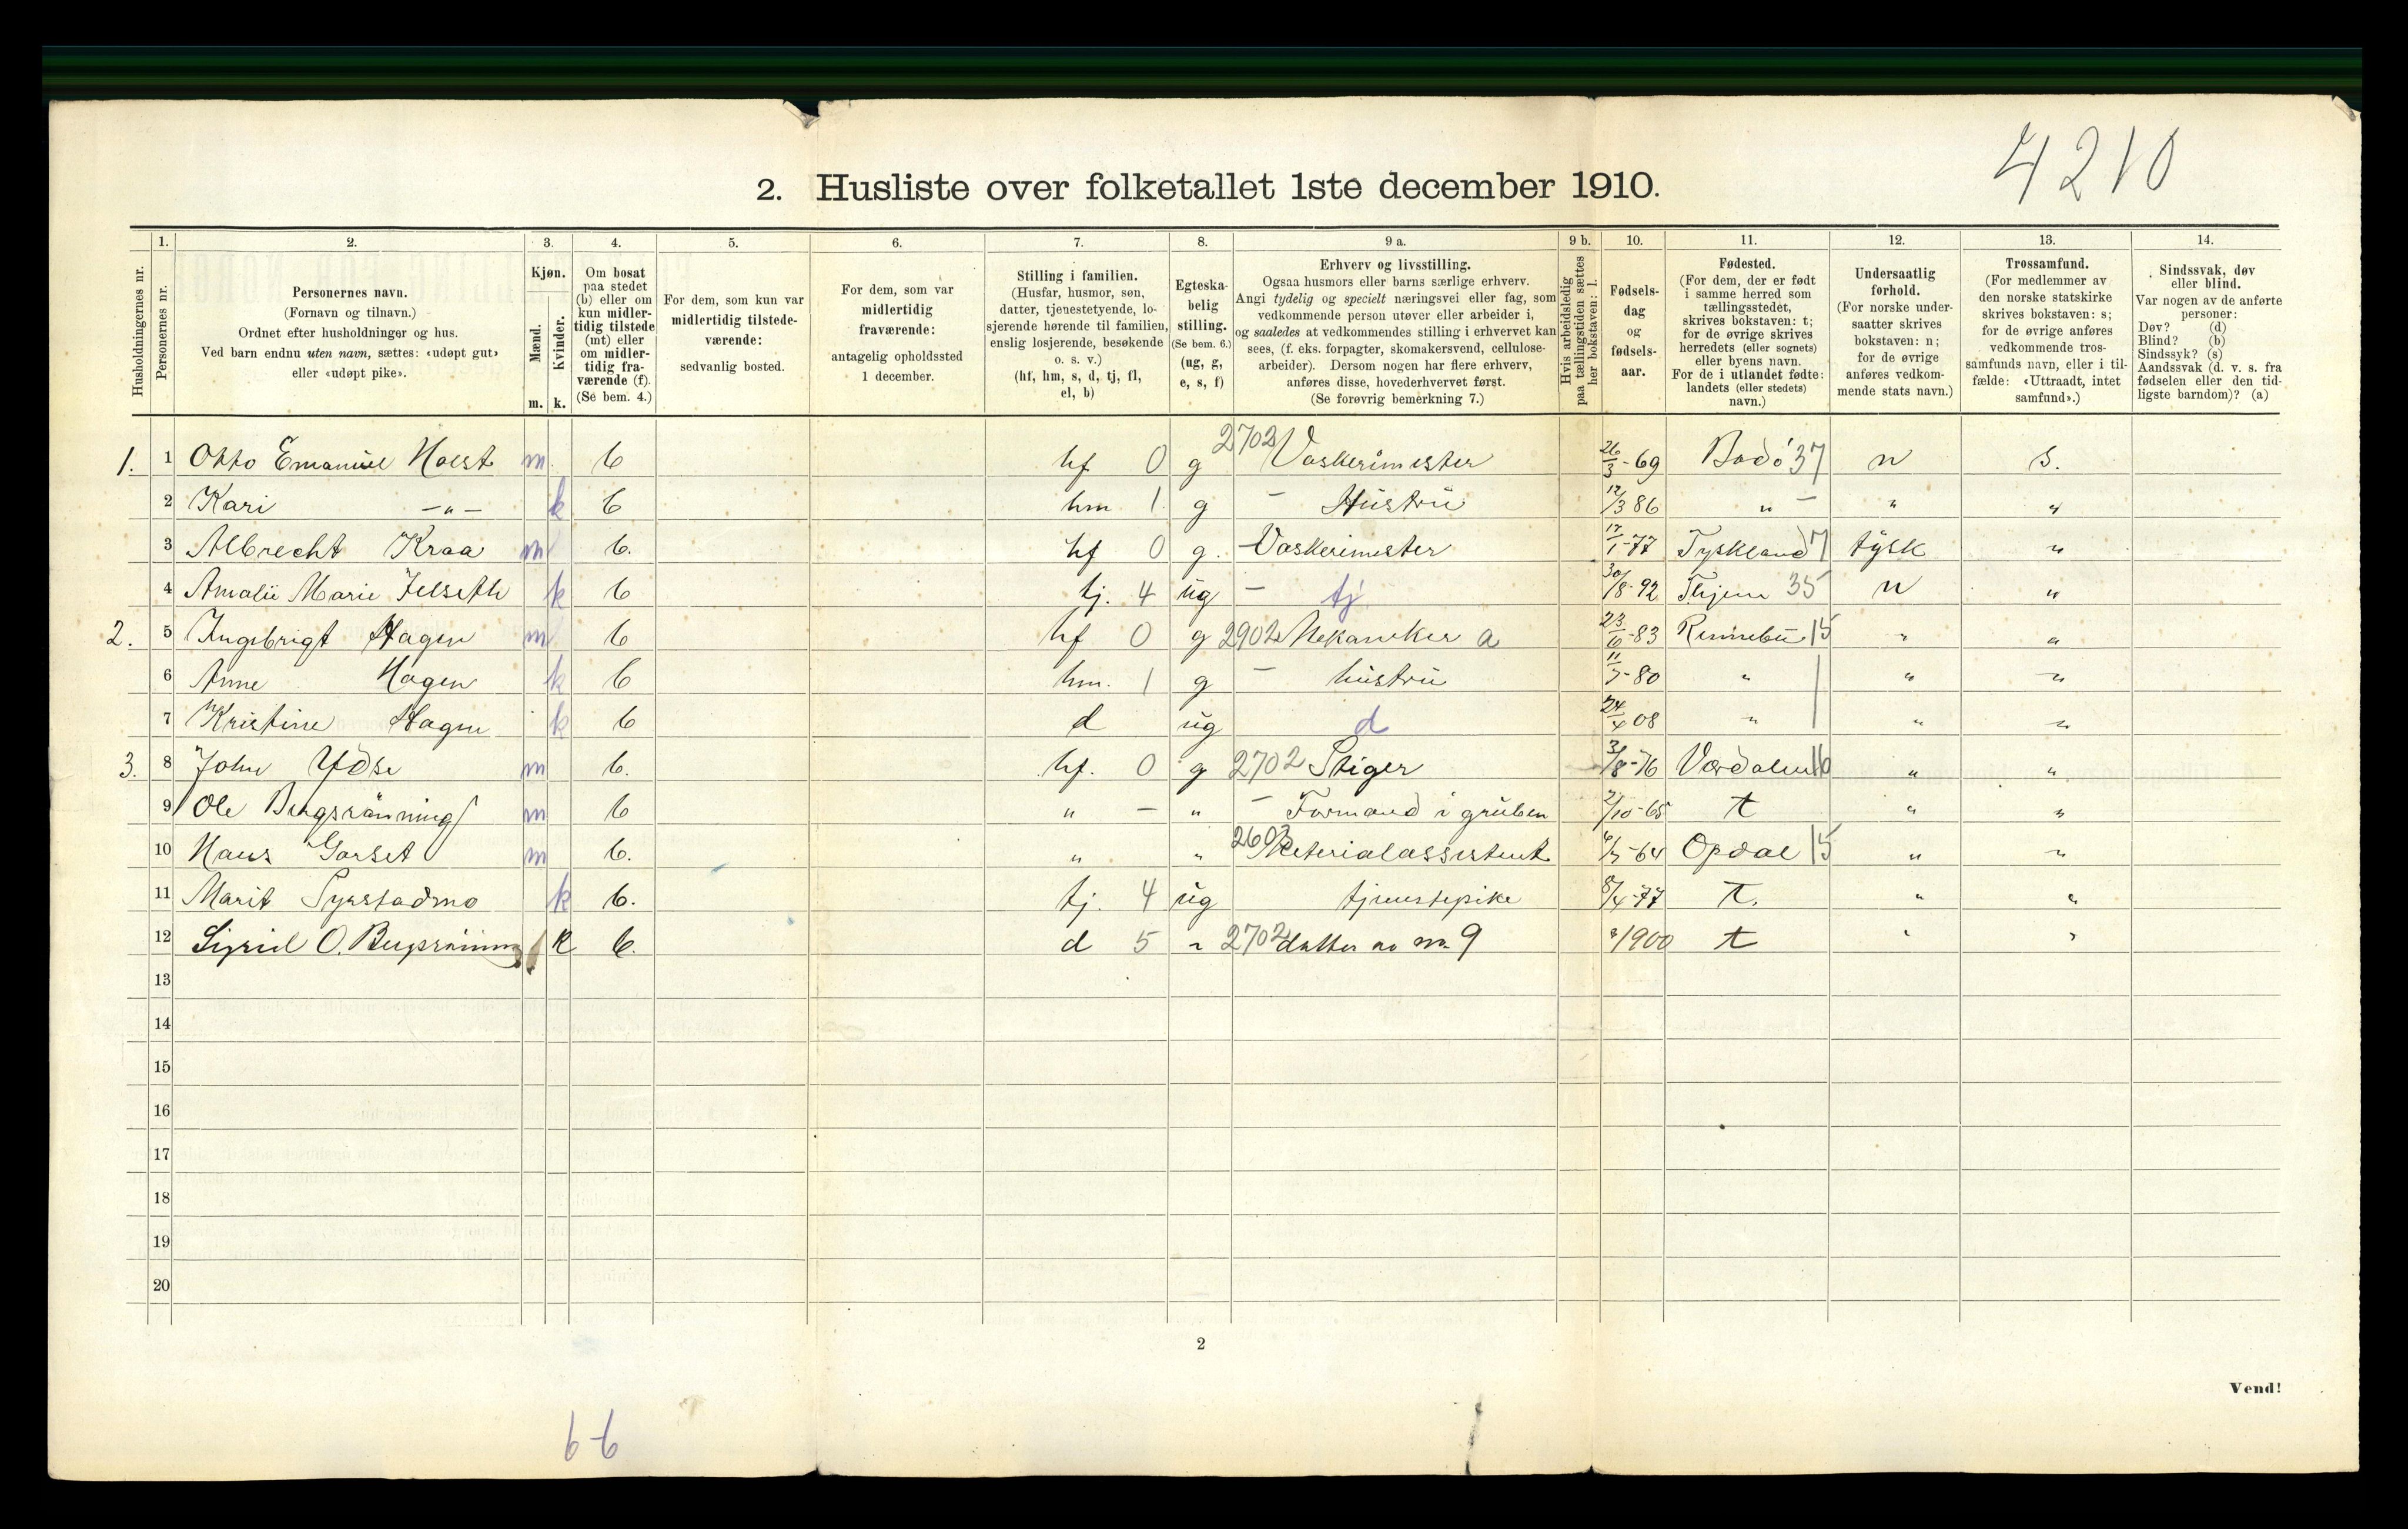 4210
2. Husliste over folketallet 1ste december 1910.
1. 2. 3. 4. 5. 6. 7. 8. 9 a. 9 b. 10. 11. 12. 13. 14.
Husholdningernes nr.
Personernes nr.
Personernes navn.
(Fornavn og tilnavn.)
Ordnet efter husholdninger og hus.
Ved barn endnu uten navn, sættes: «udøpt gut»
eller «udøpt pike».
Kjøn.
Mænd.
Kvinder.
m. k.
Om bosat
paa stedet
(b) eller om
kun midler-
tidig tilstede
(mt) eller
om midler-
tidig fra-
værende (f).
(Se bem. 4.)
For dem, som kun var
midlertidig tilstede-
værende:
sedvanlig bosted.
For dem, som var
midlertidig
fraværende:
antagelig opholdssted
1 december.
Stilling i familien.
(Husfar, husmor, søn,
datter, tjenestetyende, lo-
sjerende hørende til familien,
enslig losjerende, besøkende
o. s. v.)
(hf, hm, s, d, tj, fl,
el, b)
Egteska-
belig
stilling.
(Se bem. 6.)
(ug, g,
e, s, f)
Erhverv og livsstilling.
Ogsaa husmors eller barns særlige erhverv.
Angi tydelig og specielt næringsvei eller fag, som
vedkommende person utøver eller arbeider i,
og saaledes at vedkommendes stilling i erhvervet kan
sees, (f. eks. forpagter, skomakersvend, cellulose-
arbeider). Dersom nogen har flere erhverv,
anføres disse, hovederhvervet først.
(Se forøvrig bemerkning 7.)
Hvis arbeidsledig
paa tællingstiden sættes
her bokstaven: l.
Fødsels-
dag
og
fødsels-
aar.
Fødested.
(For dem, der er født
i samme herred som
tællingsstedet,
skrives bokstaven: t;
for de øvrige skrives
herredets (eller sognets)
eller byens navn.
For de i utlandet fødte:
landets (eller stedets)
navn.)
Undersaatlig
forhold.
(For norske under-
saatter skrives
bokstaven: n;
for de øvrige
anføres vedkom-
mende stats navn.)
Trossamfund.
(For medlemmer av
den norske statskirke
skrives bokstaven: s;
for de øvrige anføres
vedkommende tros-
samfunds navn, eller i til-
fælde: «Uttraadt, intet
samfund».)
Sindssvak, døv
eller blind.
Var nogen av de anførte
personer:
Døv? (d)
Blind? (b)
Sindssyk? (s)
Aandssvak (d. v. s. fra
fødselen eller den tid-
ligste barndom)? (a)
1. 1 Otto Emanuel Hoest m b hf 0 g 2702 Vaskerimester 26/3-69 Bodö 37 n s.
2 Kari -"- k b hm 1 g - Hustru 12/3 86 " - " "
3 Albrecht Kraa m b. hf 0 g. - Vaskerimester 17/1-77 Tyskland 7 tysk "
4 Amalie Marie Jelseth k b tj. 4 ug - tj 30/8-92 35 n "
2. 5 Ingebrigt Hagen m b hf 0 g 2902 Mekaniker a 23/10-83 Rennebu 15 " "
6 Anne Hagen k b hm. 1 g - hustru 80 " " "
7 Kristine Hagen k b d ug d 24/4 08 " " "
3. 8 John Ydse m b. hf. 0 g 2702 Stiger 76 Værdalen 16 " "
9 Ole Bergsrönning m b " - " - Formand i gruben 2/10-65 t " "
10 Hans Gorset m b. " " 2602 Meterialassistent 64 Opdal 15 " "
11 Marit Syrstadmo k b. tj. 4 ug tjenestepike 8/4-77 t. " "
12 Sigrid O. Bergsrönning k b. d 5 " 2702 datter av nr. 9 1900 t " "
13
14
15
16
17
18
19
20
2
Vend!
6-6